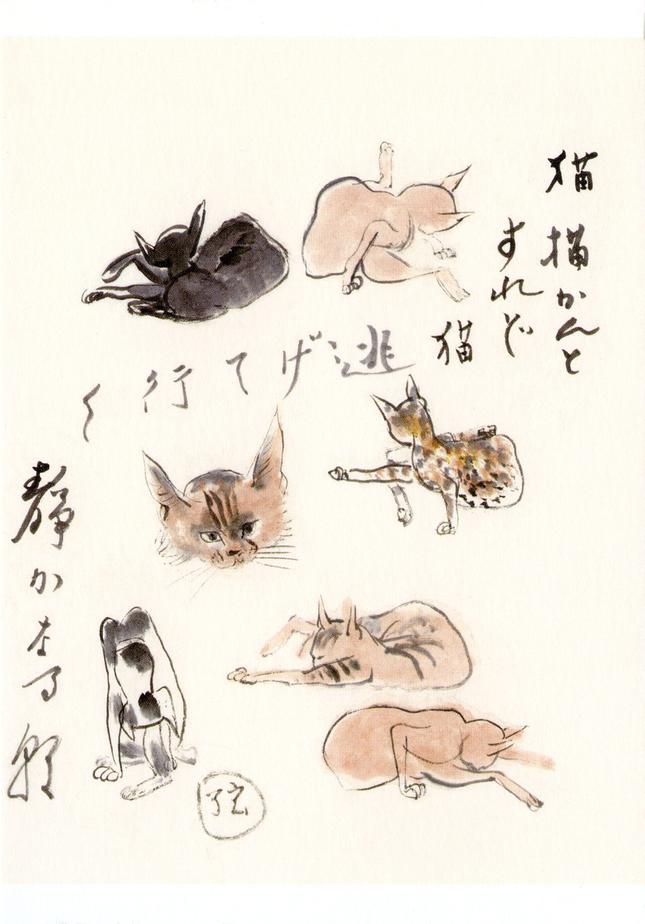 猫 描かんと
すれど
猫
逃げて行く
静かなる朝
弦